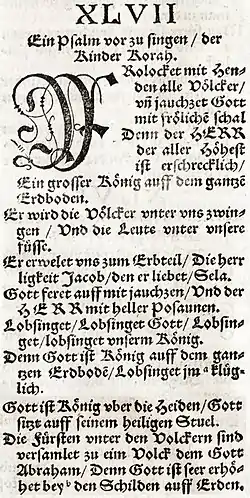 XLVII
Ein Psalm vor zu singen / der
Kinder Korah.
FRolocket mit Hen-
den alle Völcker/
vñ jauchzet Gott
mit frölichẽ schal
Denn der HERR
der aller Höhest
ist erschrecklich/
Ein grosser König auff dem gantzẽ
Erdboden.
Er wird die Völcker vnter vns zwin-
gen / Vnd die Leute vnter vnsere
füsse.
Er erwelet vns zum Erbteil/ Die herr
ligkeit Jacob/den er liebet/ Sela.
Gott feret auff mit jauchzen/ Vnd der
HERR mit heller Posaunen.
Lobsinget/ Lobsinget Gott/ Lobsin-
get/lobsinget vnserm König.
Denn Gott ist König auff dem gan-
tzen Erdbodẽ/ Lobsinget jm a klüg-
lich.
Gott ist König vber die Heiden/ Gott
sitzt auff seinem heiligen Stuel.
Die Fürsten vnter den Volckern sind
versamlet zu eim Volck dem Gott
Abraham/ Denn Gott ist seer erhö-
het bey b den Schilden auff Erden.